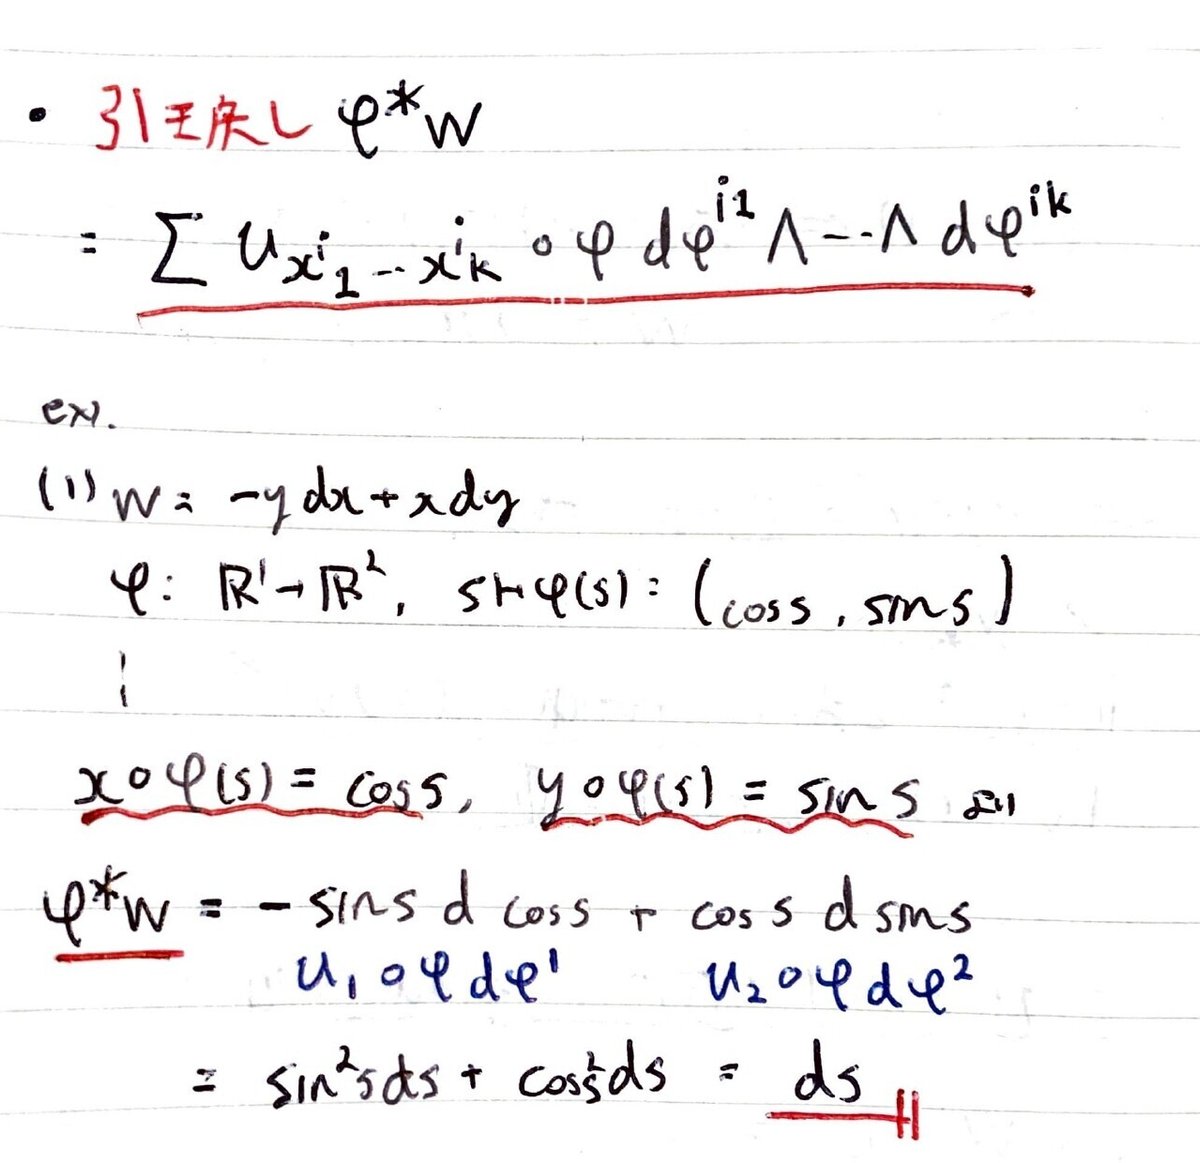 ・引き戻し φ*w
= Σ u_{x^i_1…x^i_k}∘φ dφ^{i1}∧…∧dφ^{ik}
ex).
(1) w = -ydx+xdy
φ: ℝ¹→ℝ², s↦φ(s) = (cos s, sin s)
⋮
x∘φ(s) = cos s, y∘φ(s) = sin s より
φ*w = -sin s d cos s + cos s d sin s
u₁∘φdφ¹ u₂∘φdφ²
= sin²s ds + cos²s ds = ds